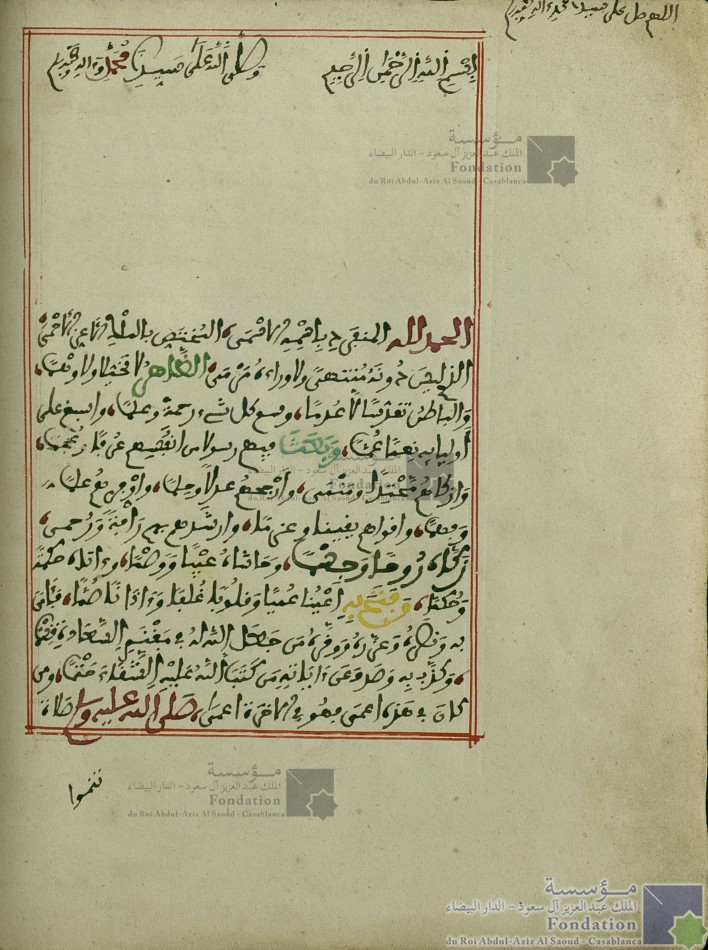 اللهم صل على سيدنا محمد وآله
بسم الله الرحمن الرحيم وصلى الله على سيدنا محمد وآله
الحمد لله المنفرد باسمه الأسمى، المختص بالملك الأعز الأحمى
الذي ليس دونه منتهى ولا وراءه مرمى، الظاهر لا تخيلا ولا وهما،
والباطن تقدسا لا عدما، وسع كل شيء رحمة وعلما، وأسبغ على
أوليائه نعما عما، وبعث فيهم رسولا من أنفسهم عربا وعجما،
وأزكاهم محتدا ومنمى، وأرجحهم عقلا وحلما، وأوفرهم علما
وفهما، وأقواهم يقينا وعزما، وأشدهم بهم رأفة ورحمى،
زكاه روحا وجسما، وحاشاه عيبا ووصما، وءاتاه حكمة
وحكما، وفتح به أعينا عميا وقلوبا غلفا وءاذانا صما، فآمن
به وعزره ونصره من جعل الله له في مغنم السعادة قسما
، وكذب به وصدف عن ءاياته من كتب الله عليه الشقاء حتما، ومن
كان في هذه أعمى فهو في الآخرة أعمى، صلى الله عليه وسلم صلاة
تنموا
مؤسسة
الملك عبدالعزيز آل سعود - الدار البيضاء
Fondation
du Roi Abdul-Aziz Al Saoud - Casablanca
مؤسسة
الملك عبدالعزيز آل سعود - الدار البيضاء
Fondation
du Roi Abdul-Aziz Al Saoud - Casablanca
مؤسسة
الملك عبدالعزيز آل سعود - الدار البيضاء
Fondation
du Roi Abdul-Aziz Al Saoud - Casablanca